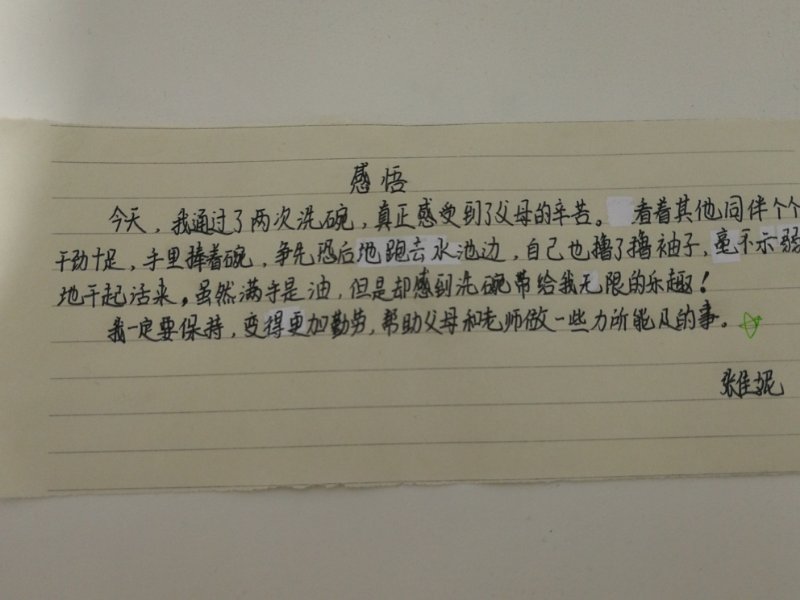 感悟
今天，我通过了两次洗碗，真正感受到了父母的辛苦。看着其他同伴个个
干劲十足，手里捧着碗，争先恐后地跑去水池边，自己也撸了撸袖子，毫不示弱
地干起活来，虽然满手是油，但是却感到洗碗带给我无限的乐趣！
我一定要保持，变得更加勤劳，帮助父母和老师做一些力所能及的事。
张佳妮